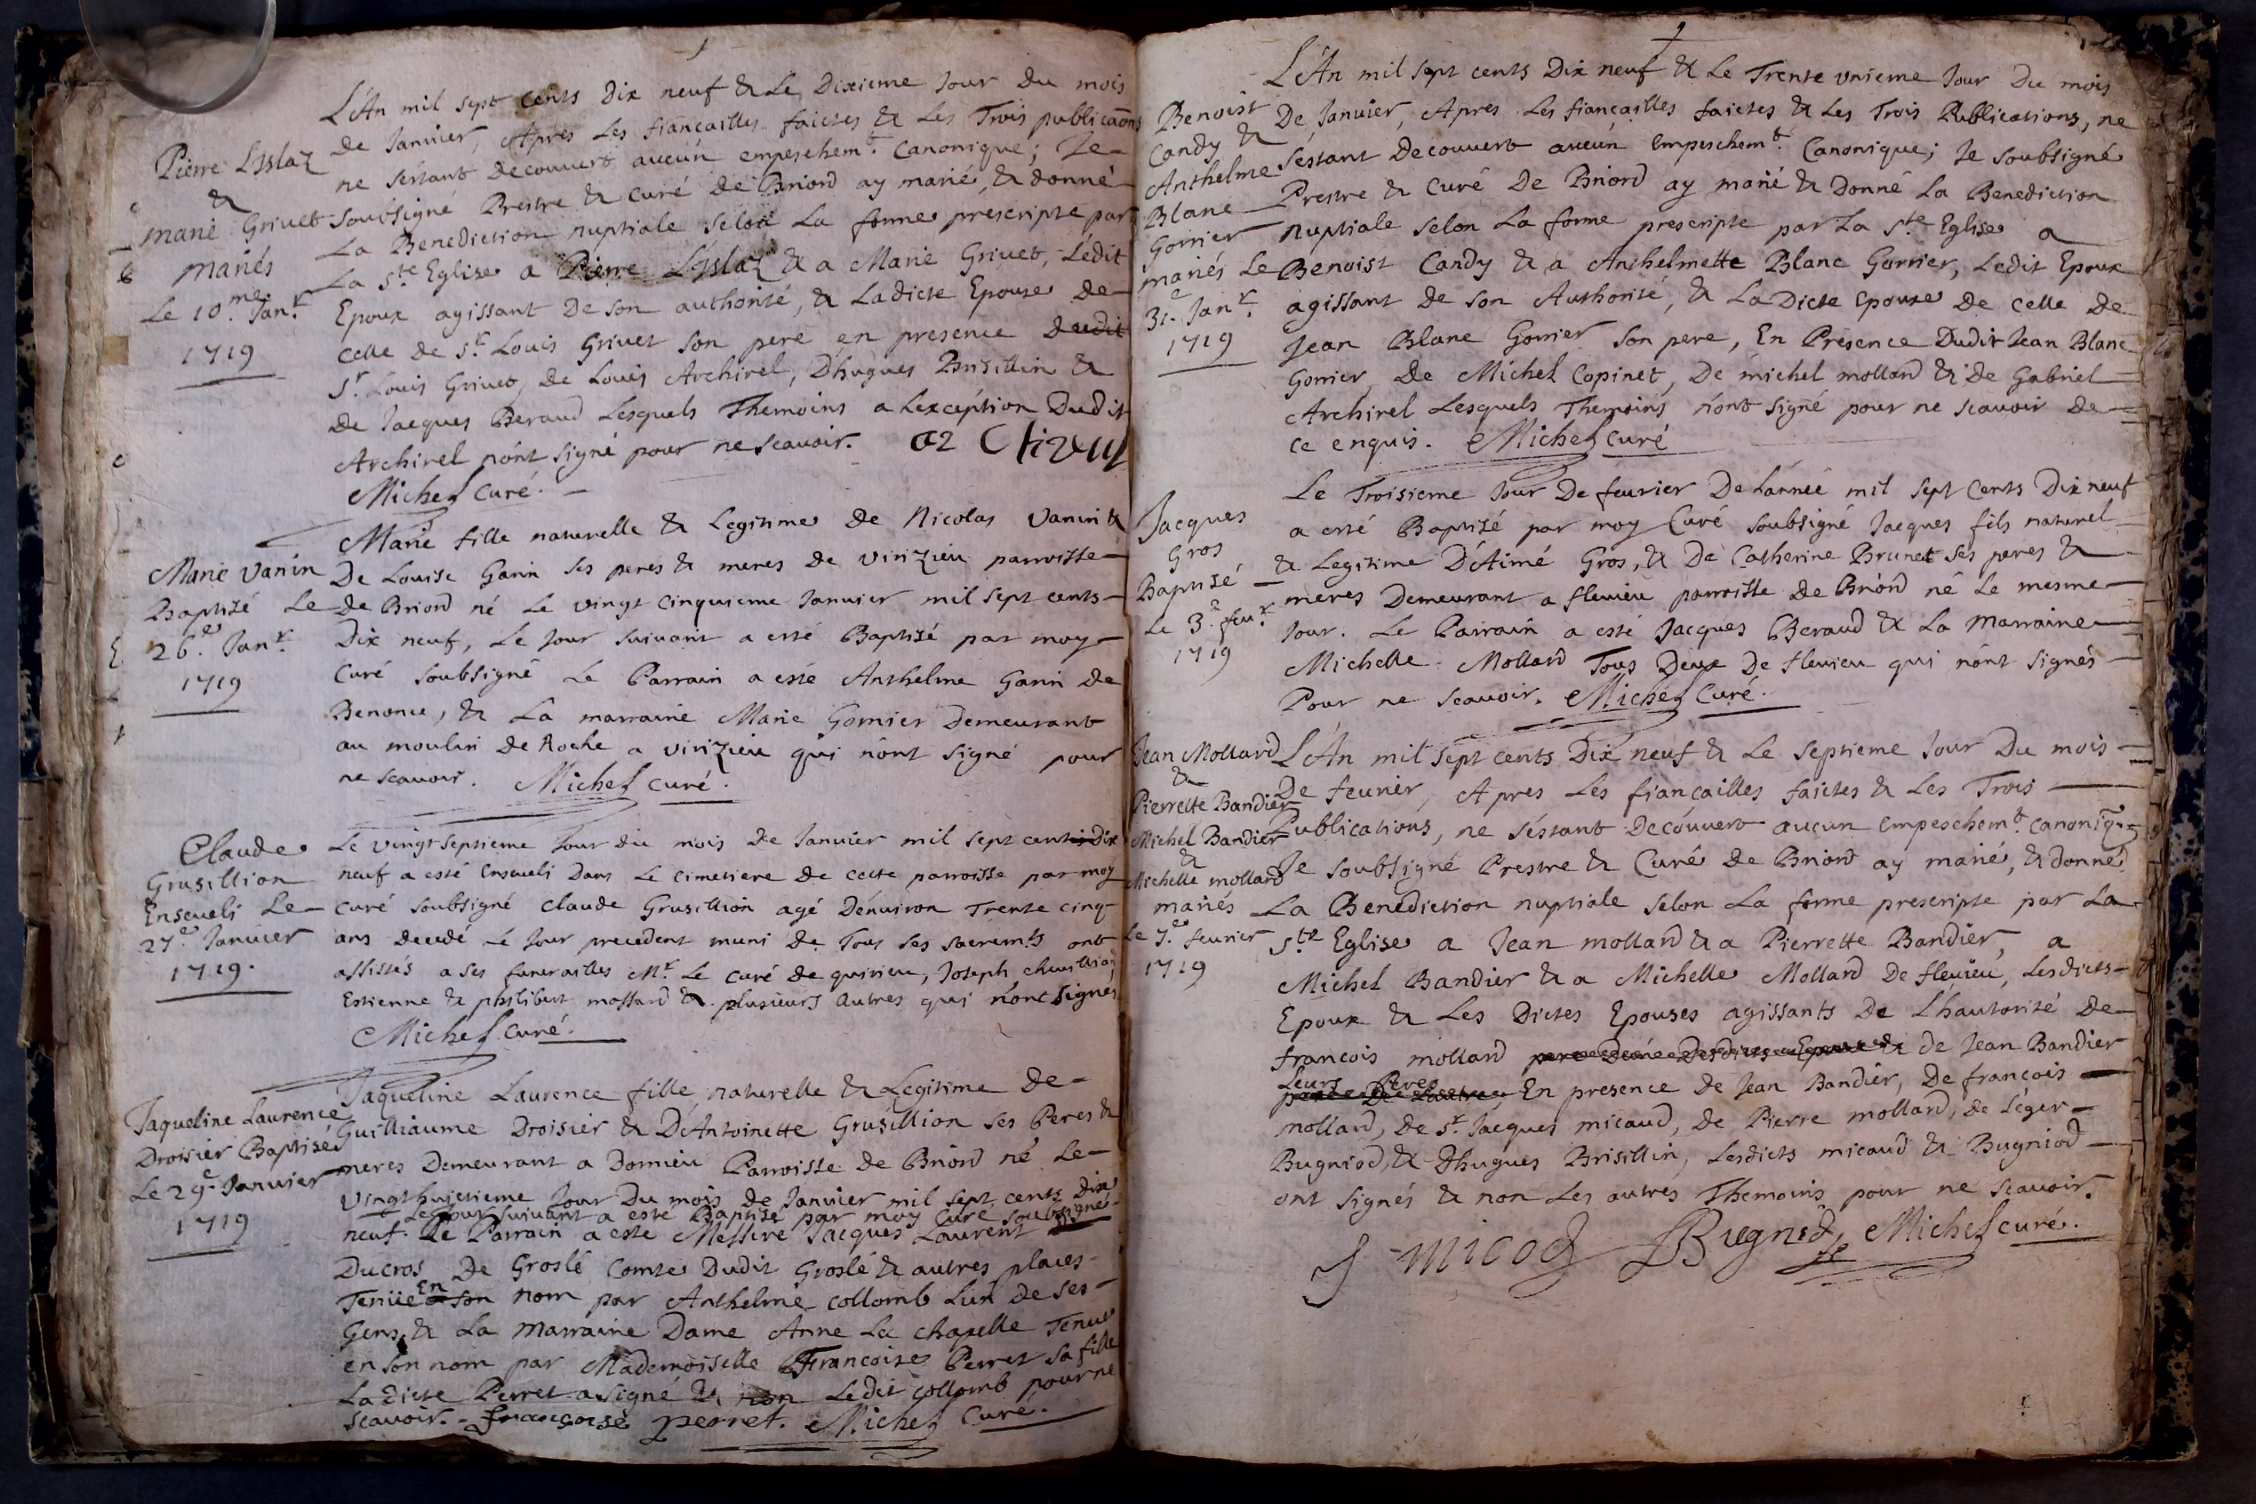 Pierre Lyslaz
&
marie Grivet
mariés
Le 10.me Janr.
1719
L'An mil sept cents dix neuf & Le Dixieme Jour du mois
de Janvier, Apres Les fiancailles faictes & Les Trois publicaons
ne s'estant decouvert aucun empeschemt. Canonique; Je
soubsigné Prestre & curé de Briord ay marié, & donné
La Benediction nuptiale selon La forme prescripte par
La ste Eglise a Pierre Lyslaz & a Marie Grivet, Ledit
Epoux agissant de son authorité, & Ladicte Epouse de
celle de sr. Louis Grivet son pere en presence dudit
sr. Louis Grivet, de Louis Archirel, D'hugues Brisillin &
de Jacques Beraud Lesquels Themoins a Lexception Dudit
Archirel n'ont signé pour ne scavoir.
Michel curé.
Marie Vanin
Baptisé Le
26.e Janr.
1719
Marie fille naturelle & Legitime de Nicolas Vanin &
De Louise Garin ses peres & meres de virizieu parroisse
de Briord né Le vingt cinquieme Janvier mil sept cents
Dix neuf, Le Jour suivant a esté Baptisé par moy
Curé soubsigné Le Parrain a esté Anthelme Garin de
Benonce, & La marraine Marie Gornier Demeurant
au moulin de Roche a virizieu qui n'ont signé pour
ne scavoir. Michel curé.
Claude
Grusillion
Enseveli Le
27.e Janvier
1719.
Le vingt septieme Jour du mois de Janvier mil sept cents Dix
neuf a esté Enseveli Dans Le cimetiere de cette parroisse par moy
curé soubsigné Claude Grusillion agé D'environ Trente cinq
ans decedé Le Jour precedent muni de Tous ses sacremts ont
assistés a ses funerailles Mr. Le curé de quirieu, Joseph
Estienne & philibert mollard & plusieurs autres qui n'ont signés
Michel curé.
Jaqueline Laurence
Droisier Baptisée
Le 29e Janvier
1719
Jaqueline Laurence fille naturelle & Legitime de
Guilliaume Droisier & D'Antoinette Grusillion ses Peres &
meres Demeurant a Dornieu Parroisse de Briord né Le
vingt huictieme Jour Du mois de Janvier mil sept cents dix
Le Jour suivant a esté Baptisé par moy Curé soubsigné
neuf. Le Parrain a esté Messire Jacques Laurent
Ducros De Groslé Comte Dudit Groslé & autres places
Tenüe En son nom par Anthelme Collomb L'un de ses
Gens, & La Marraine Dame Anne La chapelle Tenue
en son nom par Mademoiselle Francoise Perret sa fille
Ladicte Perret a signé & non Ledit Collomb pour ne
scavoir. françoise perret. Michel Curé.
Benoist
Candy &
Anthelme
Blanc
Gorrier
mariés Le
31.e Janr.
1719
L'An mil sept cents Dix neuf & Le Trente unieme Jour Du mois
De Janvier, Apres Les fiançailles faictes & Les Trois Publications, ne
s'estant Decouvert aucun Empeschemt. Canonique; Je soubsigné
Prestre & Curé De Briord ay marié & Donné La Benediction
nuptiale selon La forme prescripte par La ste. Eglise a
Benoist Candy & a Anthelmette Blanc Gorrier, Ledit Epoux
agissant de son Authorité, & LaDicte Epouse De celle De
Jean Blanc Gorrier son pere, En Presence Dudit Jean Blanc
Gorrier, De Michel Copinet, De michel mollard & de Gabriel
Archirel Lesquels Themoins n'ont signé pour ne scavoir de
ce enquis. Michel curé
Jacques
Gros
Baptisé
Le 3.e fevr.
1719
Le Troisieme Jour De fevrier De L'année mil sept Cents Dix neuf
a esté Baptisé par moy Curé soubsigné Jacques fils naturel
& Legitime D'Aimé Gros, & De Catherine Brunet ses peres &
meres Demeurant a flevieu parroisse de Briord né Le mesme
Jour. Le Parrain a esté Jacques Beraud & La Marraine
Michelle Mollard Tous Deux De flevieu qui n'ont signés
Pour ne scavoir. Michel Curé.
Jean Mollard
&
Pierrette Bandier
Michel Bandier
&
Michelle mollard
mariés
Le 7.e fevrier
1719
L'An mil sept cents Dix neuf & Le septieme Jour Du mois
De fevrier, Apres Les fiancailles faictes & Les Trois
Publications, ne s'estant Decouvert aucun Empeschemt. canoniq.
Je soubsigné Prestre & Curé de Briord ay marié, & donné
La Benediction nuptiale selon La forme prescripte par La
ste Eglise a Jean mollard & a Pierrette Bandier, a
Michel Bandier & a Michelle Mollard De flevieu, Lesdicts
Epoux & Les Dictes Epouses agissants De L'hautorité De
francois mollard & de Jean Bandier
Leurs Peres En presence de Jean Bandier, De francois
mollard, De sr. Jacques micaud, De Pierre mollard, de Léger
Bugniod, & D'hugues Brisillin, Lesdicts micaud & Bugniod
ont signés & non Les autres Themoins pour ne scavoir.
J micod Bugniod Michel curé.